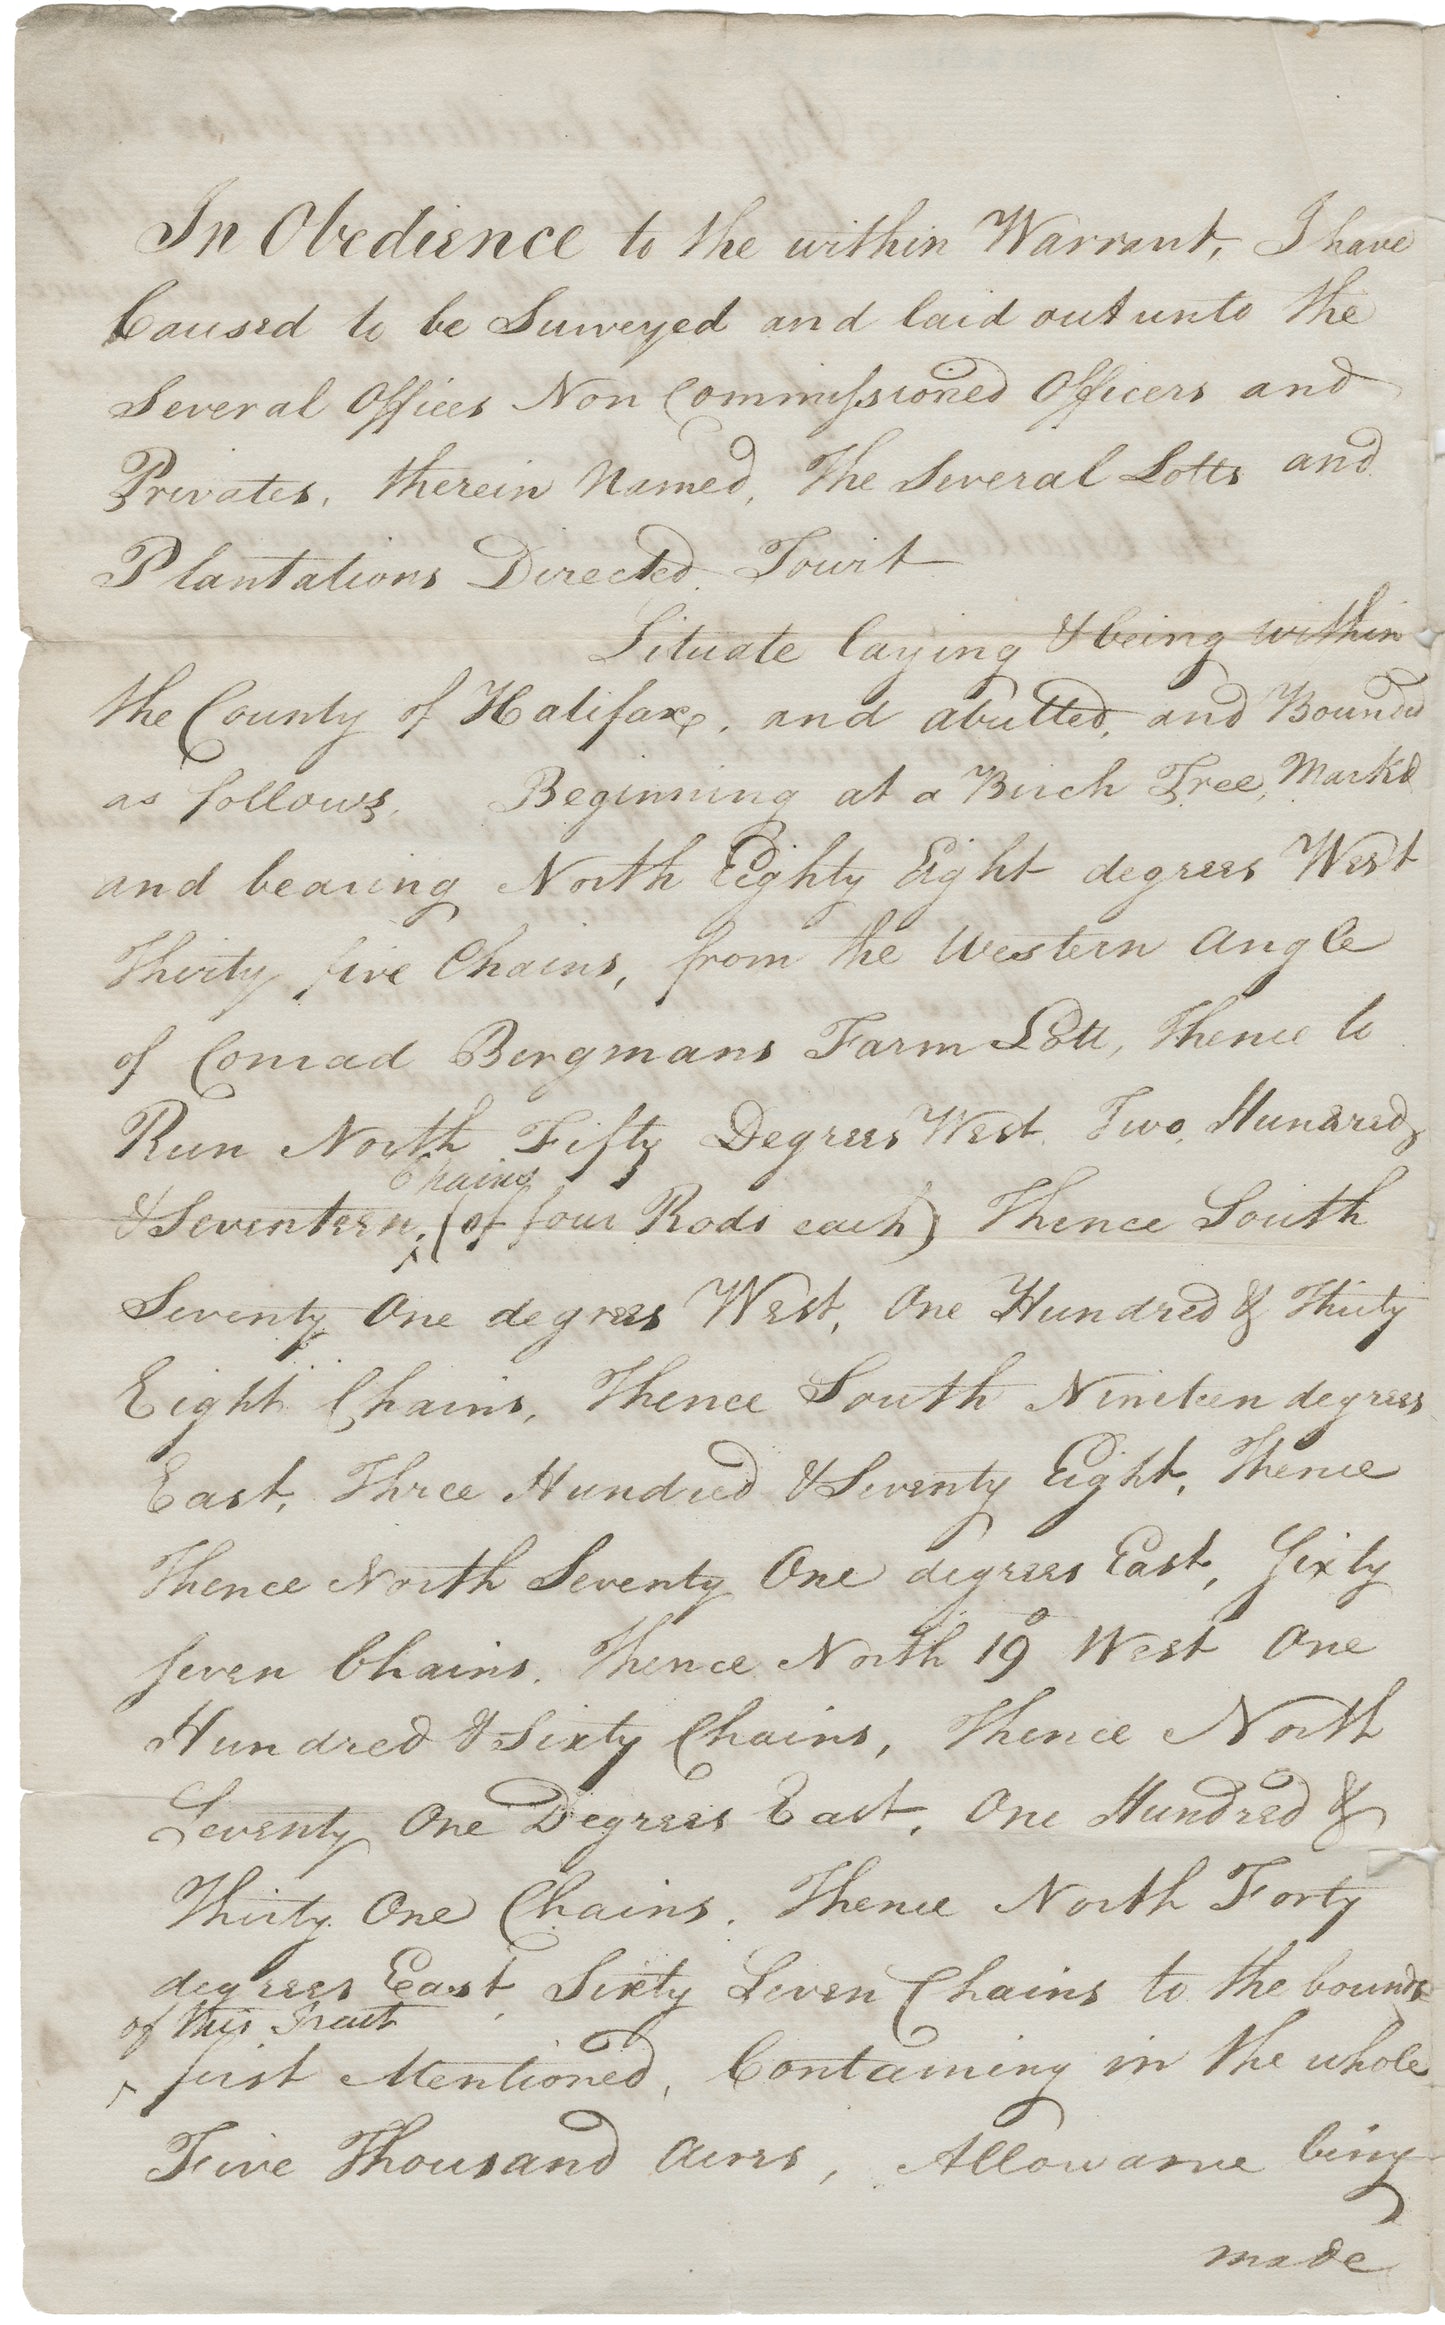 In Obedience to the within Warrant, I have
Caused to be Surveyed and laid out unto the
Several Offices Non Commissioned Officers and
Privates, therein Named, The Several Lotts and
Plantations Directed, Towit
Situate laying & being within
the County of Halifax, and abutted, and Bounded
as follows, Beginning at a Birch Tree, Markd
and bearing North Eighty Eight degrees West
Thirty five Chains, from the Western Angle
of Conrad Bergmans Farm Lott, Thence to
Run North Fifty Degrees West Two Hundred
Chains
& Seventeen, (of four Rods each) Thence South
Seventy One degrees West, One Hundred & Thirty
Eight Chains, Thence South Nineteen degrees
East, Three Hundred & Seventy Eight, Thence
Thence North Seventy One degrees East, Sixty
seven Chains. Thence North 19° West One
Hundred & Sixty Chains, Thence North
Seventy One Degrees East, One Hundred &
Thirty One Chains. Thence North Forty
degrees East Sixty Seven Chains to the bounds
of this Tract
first Mentioned, Containing in the whole
Five Thousand Acres, Allowance being
made